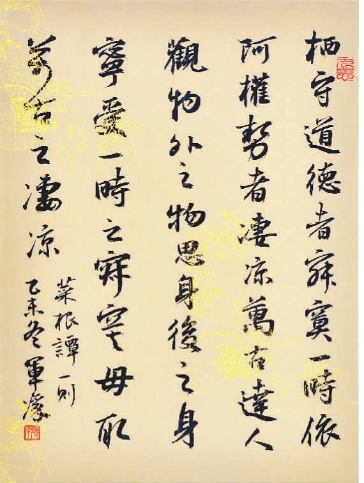 栖守道德者寂寞一時依
阿權勢者凄凉萬古達人
觀物外之物思身後之身
寧受一時之寂寞毋取
萬古之凄凉
菜根譚一則
乙未冬軍